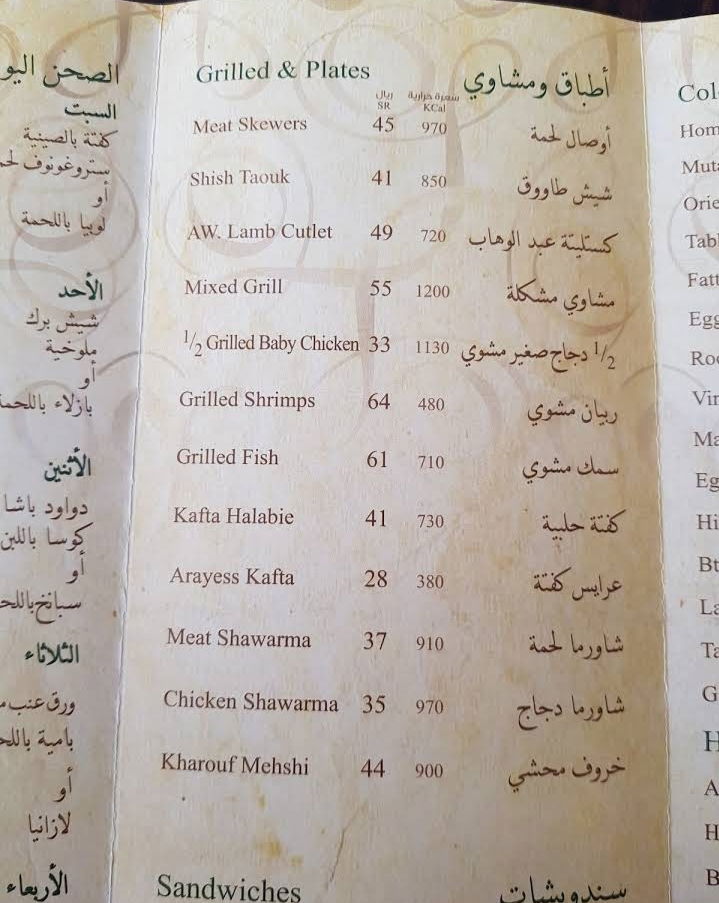 السبت
كفتة بالصينية
أو
لوبيا باللحمة
الأحد
شيش برك
ملوخية
أو
بازلاء باللحمة
الأثنين
دواود باشا
كوسا باللبن
أو
الثلاثاء
ورق عنب
أو
لازانيا
الأربعاء
Grilled & Plates أطباق ومشاوي
ريال سعرة حرارية
SR KCal
Meat Skewers 45 970 أوصال لحمة
Shish Taouk 41 850 شيش طاووق
AW. Lamb Cutlet 49 720 كستليتة عبد الوهاب
Mixed Grill 55 1200 مشاوي مشكلة
1/2 Grilled Baby Chicken 33 1130 1/2 دجاج صغير مشوي
Grilled Shrimps 64 480 ربيان مشوي
Grilled Fish 61 710 سمك مشوي
Kafta Halabie 41 730 كفتة حلبية
Arayess Kafta 28 380 عرايس كفتة
Meat Shawarma 37 910 شاورما لحمة
Chicken Shawarma 35 970 شاورما دجاج
Kharouf Mehshi 44 900 خروف محشي
Sandwiches سندويشات